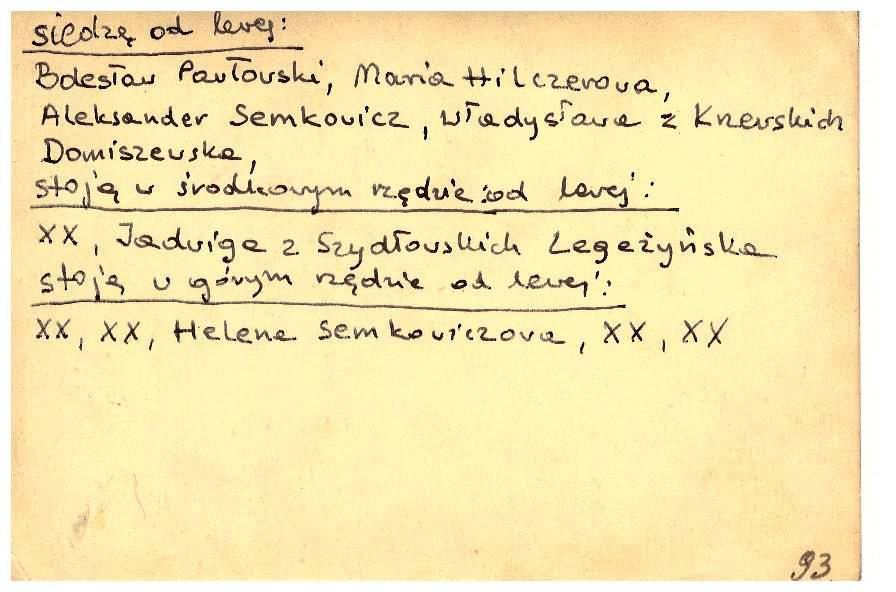 siedzą od lewej:
Bolesław Pawłowski, Maria Hilczerowa,
Aleksander Semkowicz, Władysława z Krzewskich
Domiszewska,
stoją w środkowym rzędzie: od lewej:
XX, Jadwiga z Szydłowskich Legeżyńska
stoją w górnym rzędzie od lewej:
XX, XX, Helena Semkowiczowa, XX, XX
93